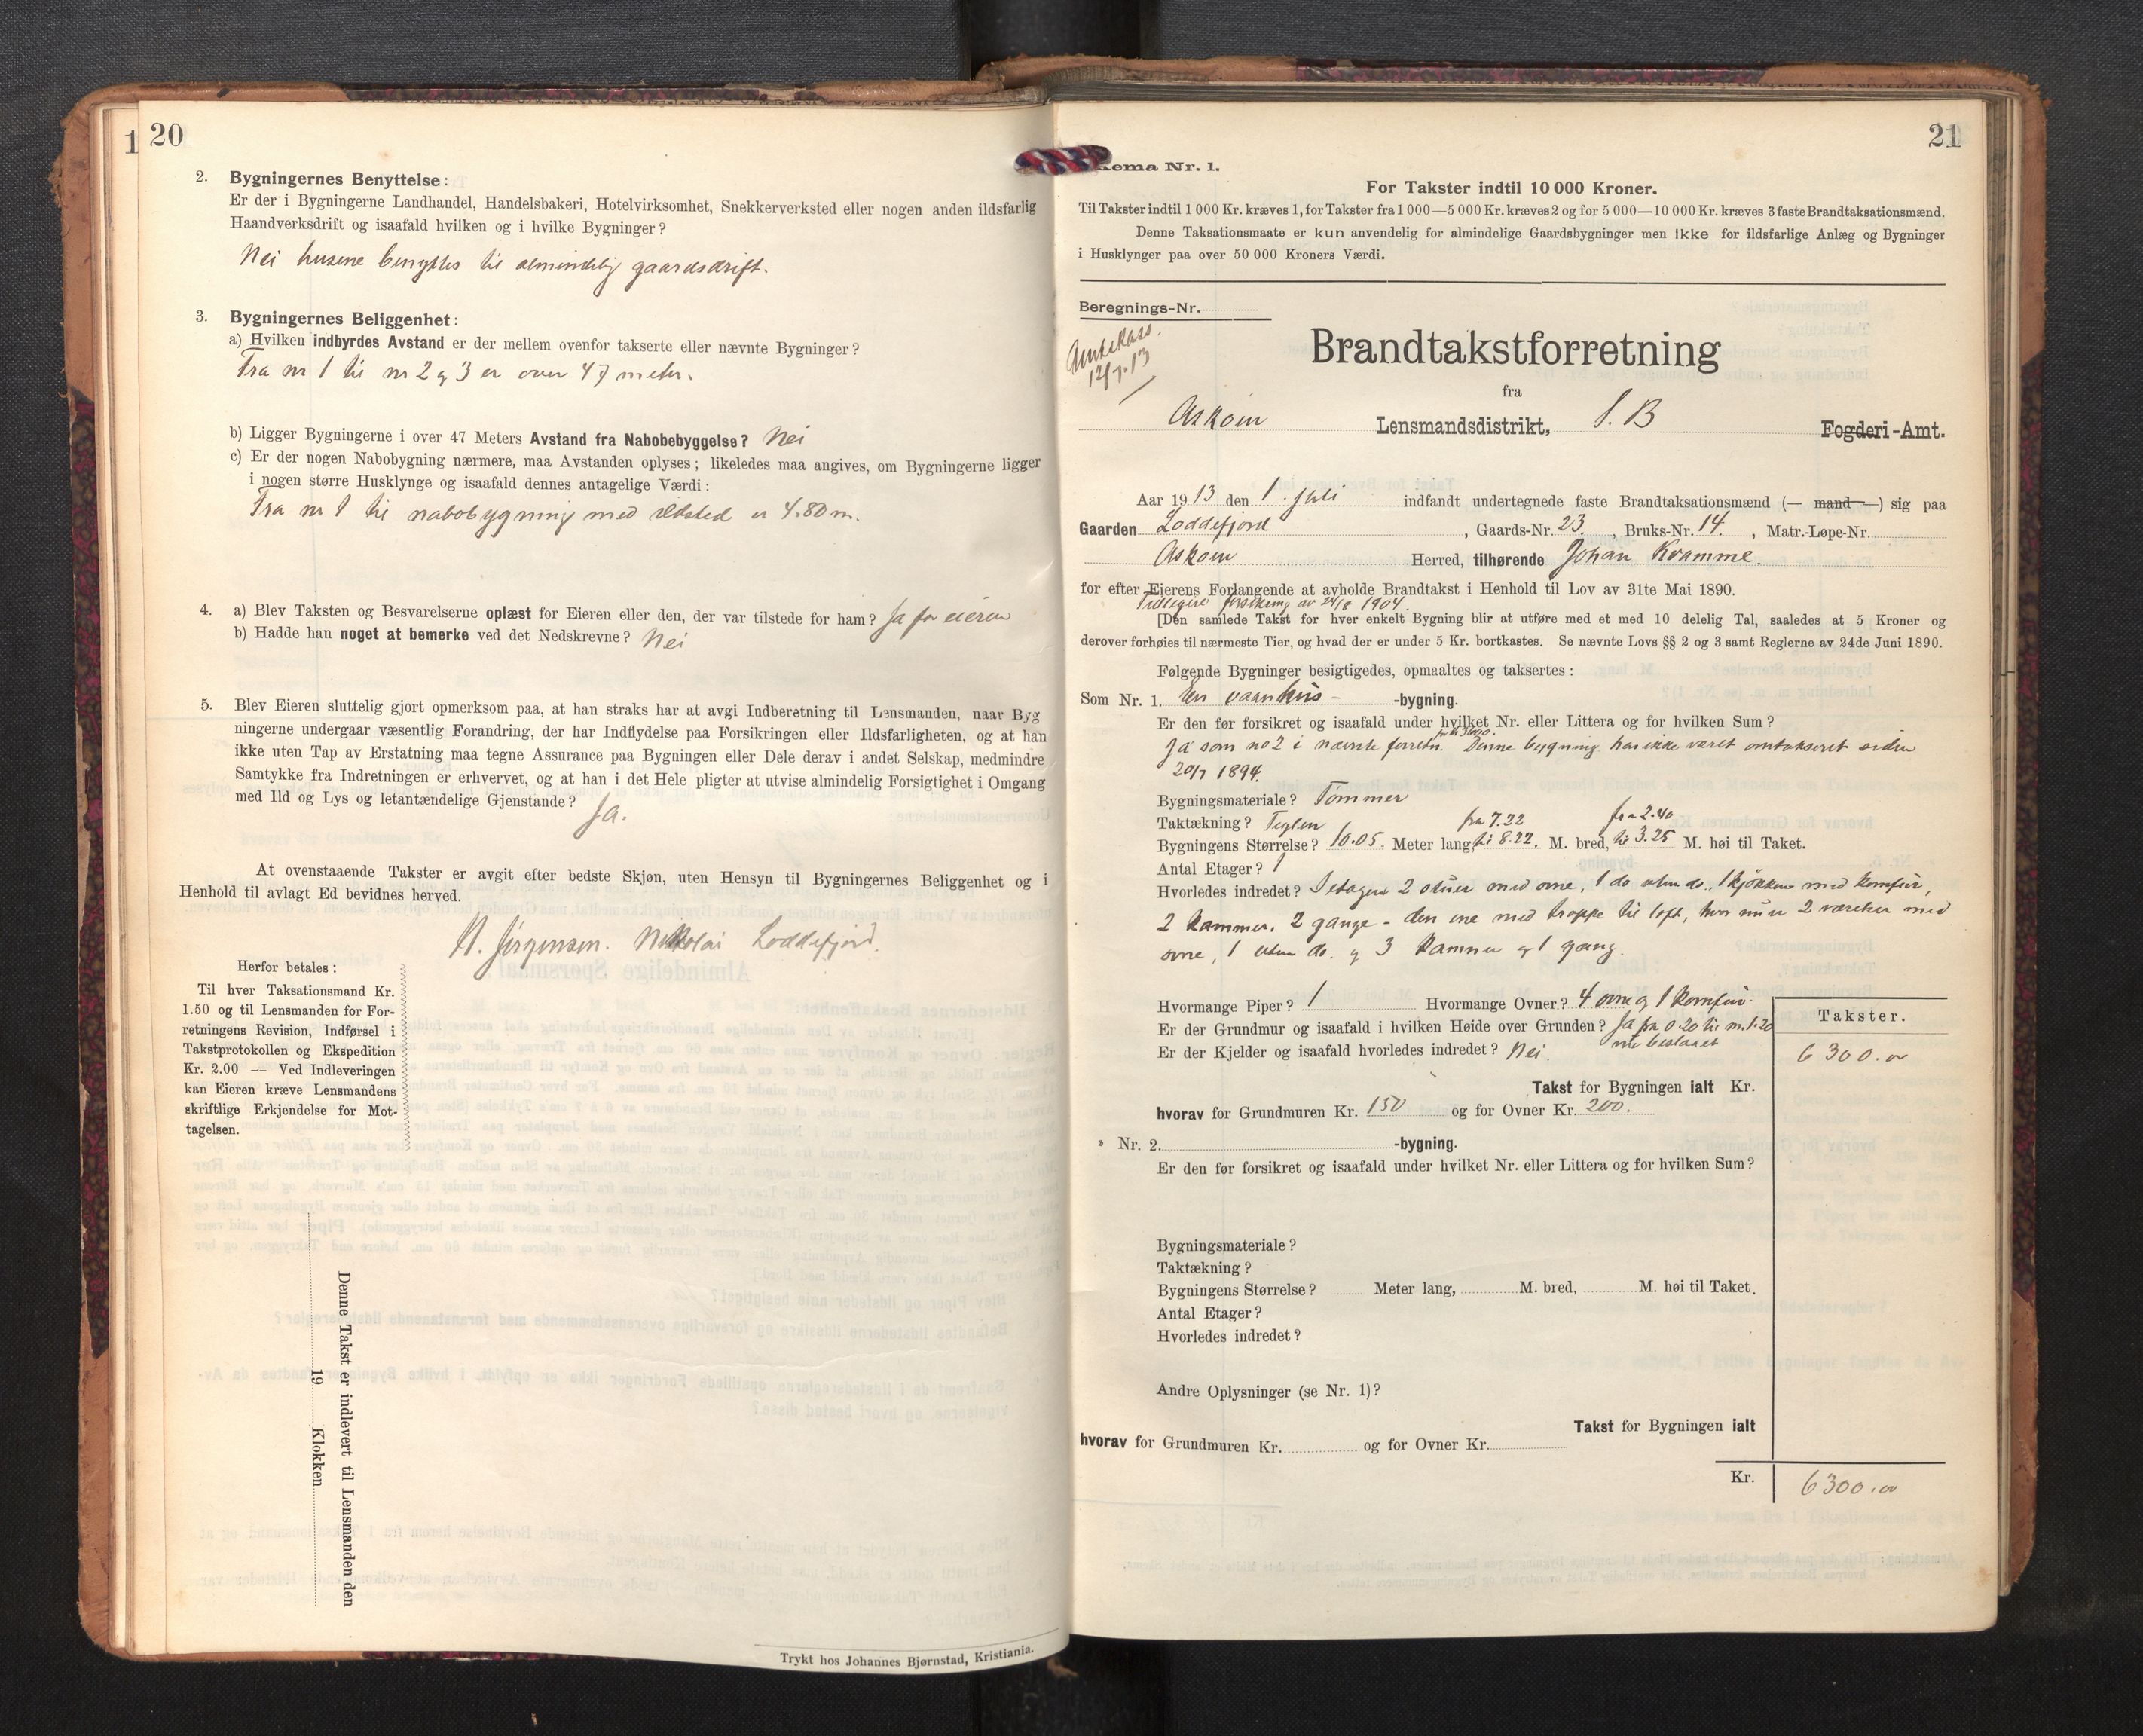 20
2. Bygningernes Benyttelse:
Er der i Bygningerne Landhandel, Handelsbakeri, Hotelvirksomhet, Snekkerverksted eller nogen anden ildsfarlig
Haandverksdrift og isaafald hvilken og i hvilke Bygninger?
Nei husene benyttes til almindelig gaardsdrift.
3. Bygningernes Beliggenhet:
a) Hvilken indbyrdes Avstand er der mellem ovenfor takserte eller nævnte Bygninger?
Fra nr 1 til nr 2 og 3 er over 47 meter.
b) Ligger Bygningerne i over 47 Meters Avstand fra Nabobebyggelse? Nei
c) Er der nogen Nabobygning nærmere, maa Avstanden oplyses; likeledes maa angives, om Bygningerne ligger
i nogen større Husklynge og isaafald dennes antagelige Værdi:
Fra nr 1 til nabobygning med ildsted er 4.80 m.
4. a) Blev Taksten og Besvarelserne oplæst for Eieren eller den, der var tilstede for ham? Ja for eieren
b) Hadde han noget at bemerke ved det Nedskrevne? Nei
5. Blev Eieren sluttelig gjort opmerksom paa, at han straks har at avgi Indberetning til Lensmanden, naar Byg
ningerne undergaar væsentlig Forandring, der har Indflydelse paa Forsikringen eller Ildsfarligheten, og at han
ikke uten Tap av Erstatning maa tegne Assurance paa Bygningen eller Dele derav i andet Selskap, medmindre
Samtykke fra Indretningen er erhvervet, og at han i det Hele pligter at utvise almindelig Forsigtighet i Omgang
med Ild og Lys og letantændelige Gjenstande? Ja.
At ovenstaaende Takster er avgit efter bedste Skjøn, uten Hensyn til Bygningernes Beliggenhet og i
Henhold til avlagt Ed bevidnes herved.
N. Jørgensen. Nikolai Loddefjord.
Herfor betales:
Til hver Taksationsmand Kr.
1.50 og til Lensmanden for For-
retningens Revision, Indførsel i
Takstprotokollen og Ekspedition
Kr. 2.00 — Ved Indleveringen
kan Eieren kræve Lensmandens
skriftlige Erkjendelse for Mot-
tagelsen.
Denne Takst er indlevert til Lensmanden den
19 Klokken
Trykt hos Johannes Bjørnstad, Kristiania.
21
ema Nr. 1.
For Takster indtil 10 000 Kroner.
Til Takster indtil 1 000 Kr. kræves 1, for Takster fra 1 000—5 000 Kr. kræves 2 og for 5 000—10 000 Kr. kræves 3 faste Brandtaksationsmænd.
Denne Taksationsmaate er kun anvendelig for almindelige Gaardsbygninger men ikke for ildsfarlige Anlæg og Bygninger
i Husklynger paa over 50 000 Kroners Værdi.
Beregnings-Nr.
Amtskass.
12/7.13
Brandtakstforretning
fra
Askøin Lensmandsdistrikt, S. B Fogderi-Amt.
Aar 1913 den 1. Juli indfandt undertegnede faste Brandtaksationsmænd (— mand —) sig paa
Gaarden Loddefjord, Gaards-Nr. 23, Bruks-Nr. 14., Matr.-Løpe-Nr.
Askøin Herred, tilhørende Johan Kramme.
for efter Eierens Forlangende at avholde Brandtakst i Henhold til Lov av 31te Mai 1890.
Tidligere forsikring av 24/8 1904.
[Den samlede Takst for hver enkelt Bygning blir at utføre med et med 10 delelig Tal, saaledes at 5 Kroner og
derover forhøies til nærmeste Tier, og hvad der er under 5 Kr. bortkastes. Se nævnte Lovs §§ 2 og 3 samt Reglerne av 24de Juni 1890.
Følgende Bygninger besigtigedes, opmaaltes og taksertes:
Som Nr. 1. En vaanhus -bygning.
Er den før forsikret og isaafald under hvilket Nr. eller Littera og for hvilken Sum?
Ja som no 2 i nævnte forretn. Denne bygning har ikke været omtakseret siden
20/7 1894.
Bygningsmateriale? Tømmer
Taktækning? Teglen fra 7.22 fra 2.40
Bygningens Størrelse? 10.05. Meter lang, til 8.22. M. bred, til 3.25 M. høi til Taket.
Antal Etager? 1
Hvorledes indredet? I etagen 2 stuer med ovne, 1 do uten do., 1 kjøkken med komfür,
2 kammer, 2 gange - den ene med trappe til loft, hvor nu er 2 værelser med
ovne, 1 uten do. og 3 kamner og 1 gang.
Hvormange Piper? 1 Hvormange Ovner? 4 ovne og 1 komfür.
Er der Grundmur og isaafald i hvilken Høide over Grunden? Ja fra 0.20 til m. 1.20
Er der Kjelder og isaafald hvorledes indredet? Nei.
Takster.
6300.00
Takst for Bygningen ialt Kr.
hvorav for Grundmuren Kr. 150 og for Ovner Kr. 200.
» Nr. 2. -bygning.
Er den før forsikret og isaafald under hvilket Nr. eller Littera og for hvilken Sum?
Bygningsmateriale?
Taktækning?
Bygningens Størrelse? Meter lang, M. bred, M. høi til Taket.
Antal Etager?
Hvorledes indredet?
Andre Oplysninger (se Nr. 1)?
Takst for Bygningen ialt
hvorav for Grundmuren Kr. og for Ovner Kr.
Kr. 6300.00